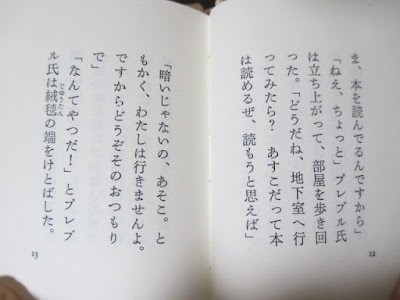 ま、本を読んでるんですから」
「ねえ、ちょっと」プレブル氏
は立ち上がって、部屋を歩き回
った。「どうだね、地下室へ行
ってみたら？　あすこだって本
は読めるぜ、読もうと思えば」
12
「暗いじゃないの、あそこ。と
もかく、わたしは行きませんよ。
ですからどうぞそのおつもり
で」
「なんてやつだ！」とプレブ
ル氏は絨毯の端をけとばした。
じゅうたん
13